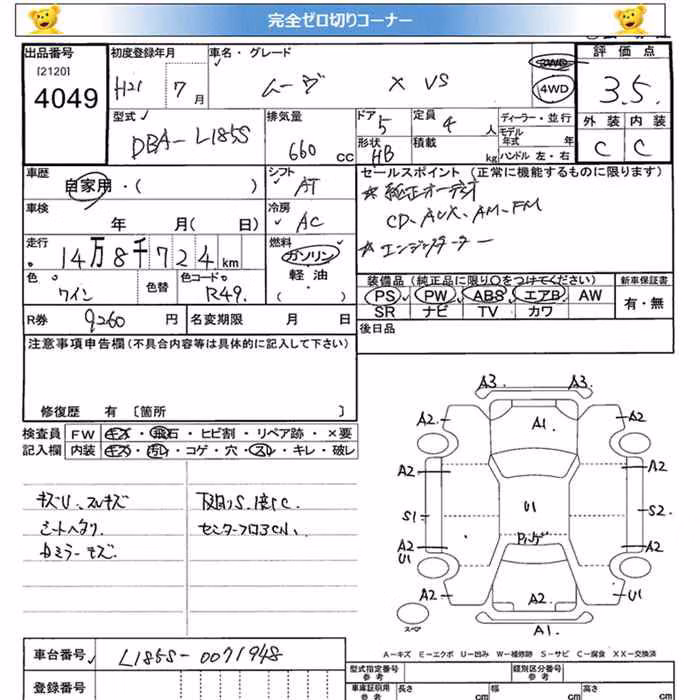 完全ゼロ切りコーナー
出品番号 初度登録年月 車名・グレード 評価点
[2120]
4049 H21 7月 ムーヴ X VS 4WD 3.5
型式 排気量 ドア 定員 ディーラー・並行 外装 内装
DBA-L185S 660cc 5 4人 モデル年式 年 C C
形状 HB 積載 kg ハンドル 左・右
車歴 シフト セールスポイント (正常に機能するものに限ります)
自家用・( ) AT ☆純正オーディオ
車検 冷房 CD、AUX、AM-FM
年 月( 日) AC ☆エンジンスターター
走行 燃料
14万8千724km ガソリン
色 色替 色コード 軽油 装備品(純正品に限り○をつけてください) 新車保証書
ワイン R49. ( ・ ) PS PW ABS エアB AW 有・無
SR ナビ TV カワ
R券 9260円 名変期限 月 日 後日品
注意事項申告欄(不具合内容等は具体的に記入して下さい)
修復歴 有 [箇所 ]
検査員 FW キズ・飛石・ヒビ割・リペア跡・×要
記入欄 内装 キズ・汚レ・コゲ・穴・スレ・キレ・破レ
キズU、スレキズ
シートヘタリ
A3. A3.
A2 A1 A2
A2 A2
S1 U1 S2
A2 A2
U1
A2 A2 U1
スペア A1.
A-キズ E-エクボ U-凹み W-補修跡 S-サビ C-腐食 XX-交換済
車台番号 L185S-0071948
登録番号
型式指定番号 参考 類別区分番号 参考
車庫証明用 参考 長さ cm 幅 cm 高さ cm